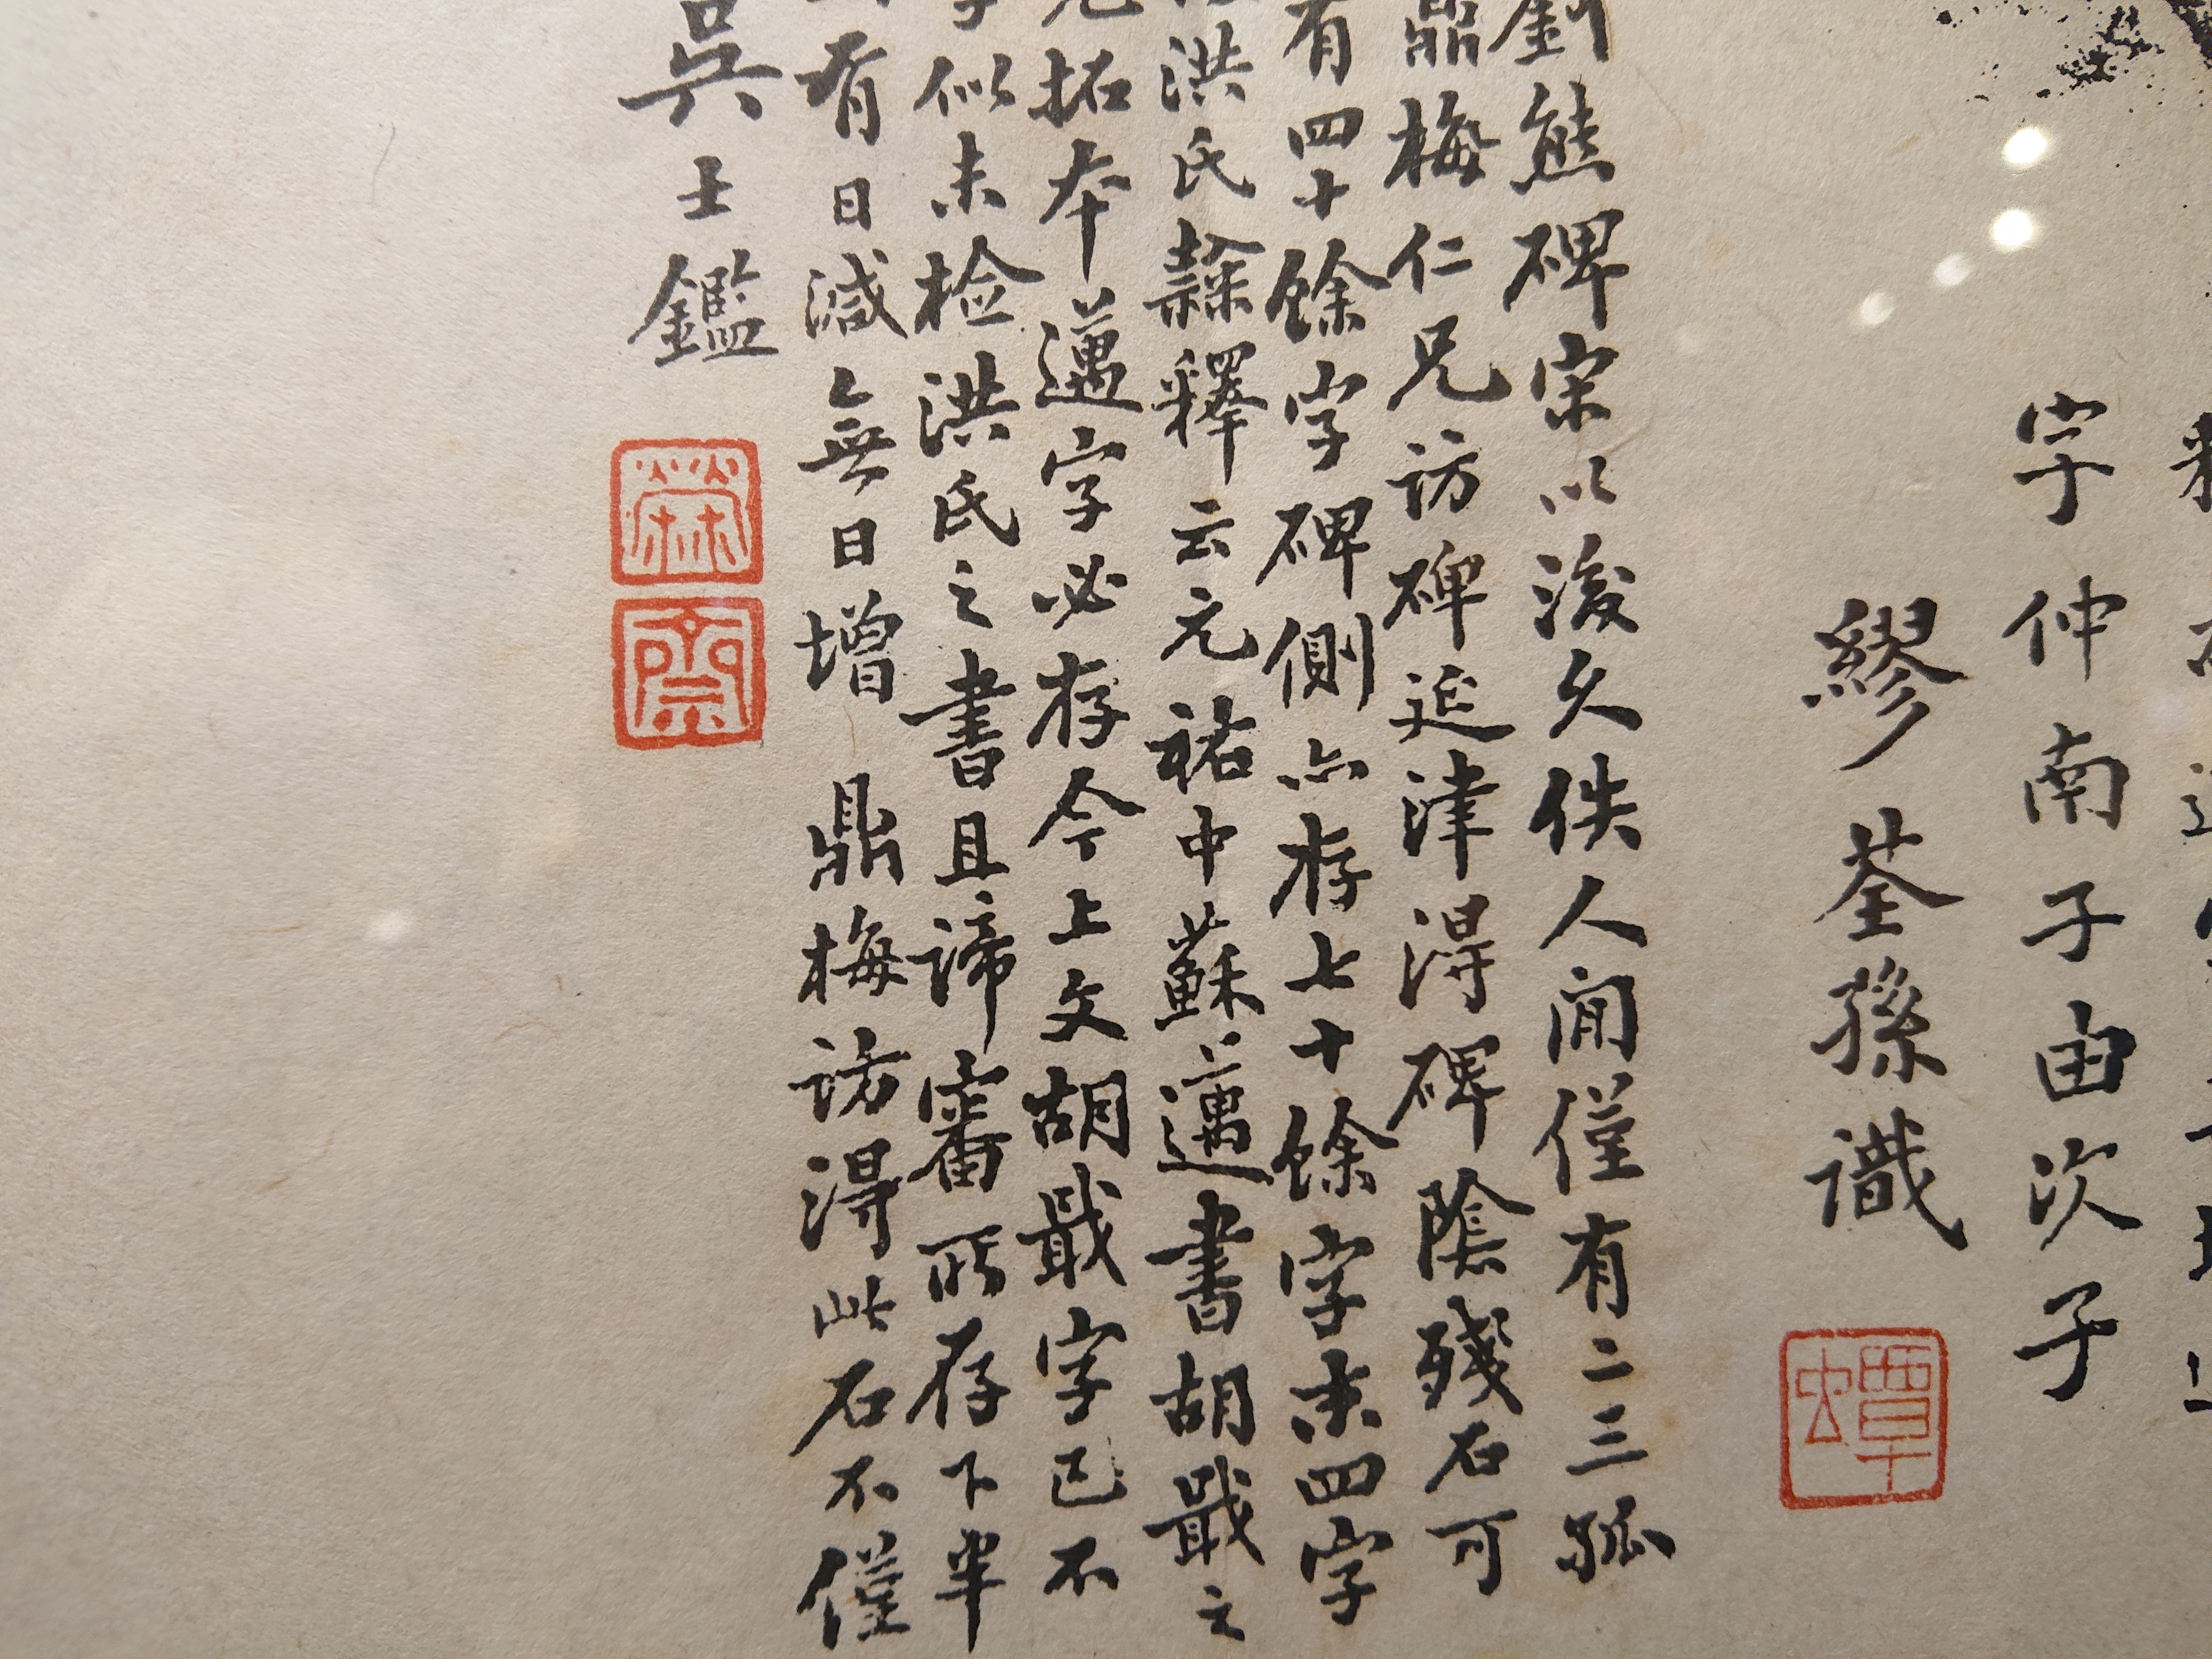 字仲南子由次子
繆荃孫識
劉熊碑宋以後久佚人間僅有二三孤
鼎梅仁兄訪碑延津得碑陰殘石可
有四十餘字碑側亦存七十餘字末四字
洪氏隸釋云元祐中蘇邁書胡戢之
拓本邁字必存今上文胡戢字已不
字似未检洪氏之書且諦審所存下半
有日減無日增 鼎梅訪得此石不僅
吳士鑑